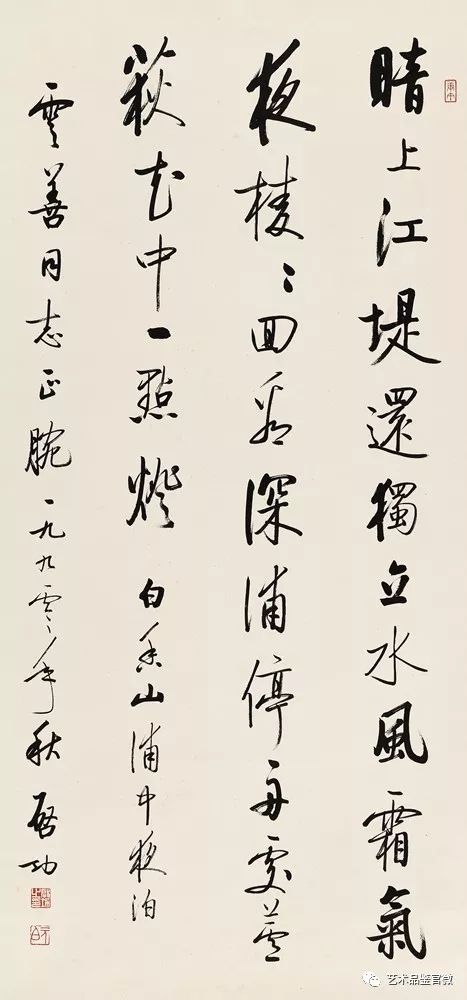 暗上江堤還獨立水風霜氣
夜棱〻回看深浦停舟處蘆
荻花中一點燈 白香山浦中夜泊
雲善同志正腕 一九九零年秋 啟功
艺术品鉴官微